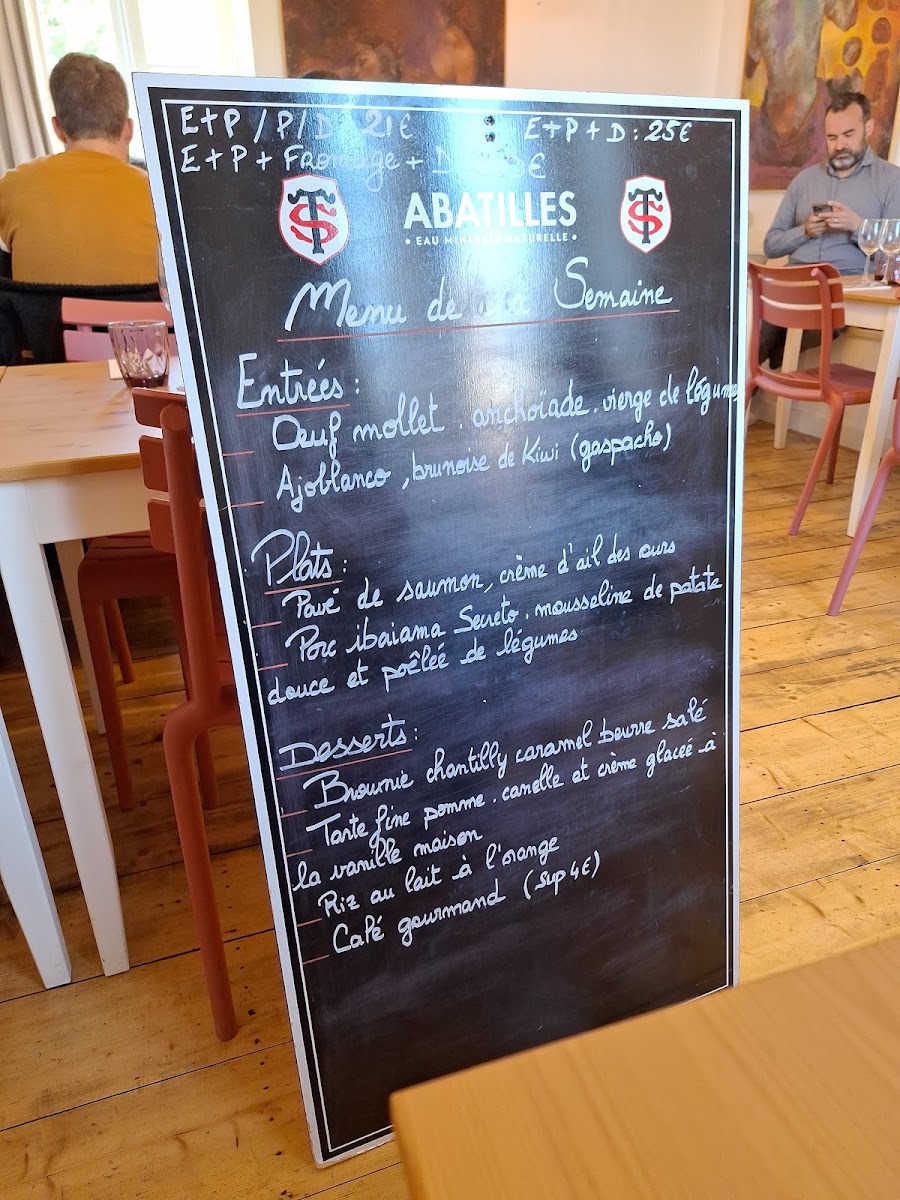 E+P / P/D : 21€ E+P+D : 25€
E+P + Fromage + D €
TS
ABATILLES
TS
• EAU MINÉRALE NATURELLE •
Menu de la Semaine
Entrées :
- Oeuf mollet . anchoïade . vierge de légumes
- Ajoblanco , brunoise de Kiwi (gaspacho)
Plats :
- Pavé de saumon, crème d'ail des ours
- Porc ibaiama Secreto . mousseline de patate
douce et poêlée de légumes
Desserts :
- Brownie chantilly caramel beurre salé
- Tarte fine pomme . canelle et crème glaceé à
la vanille maison
- Riz au lait à l'orange
- Café gourmand (sup 4€)